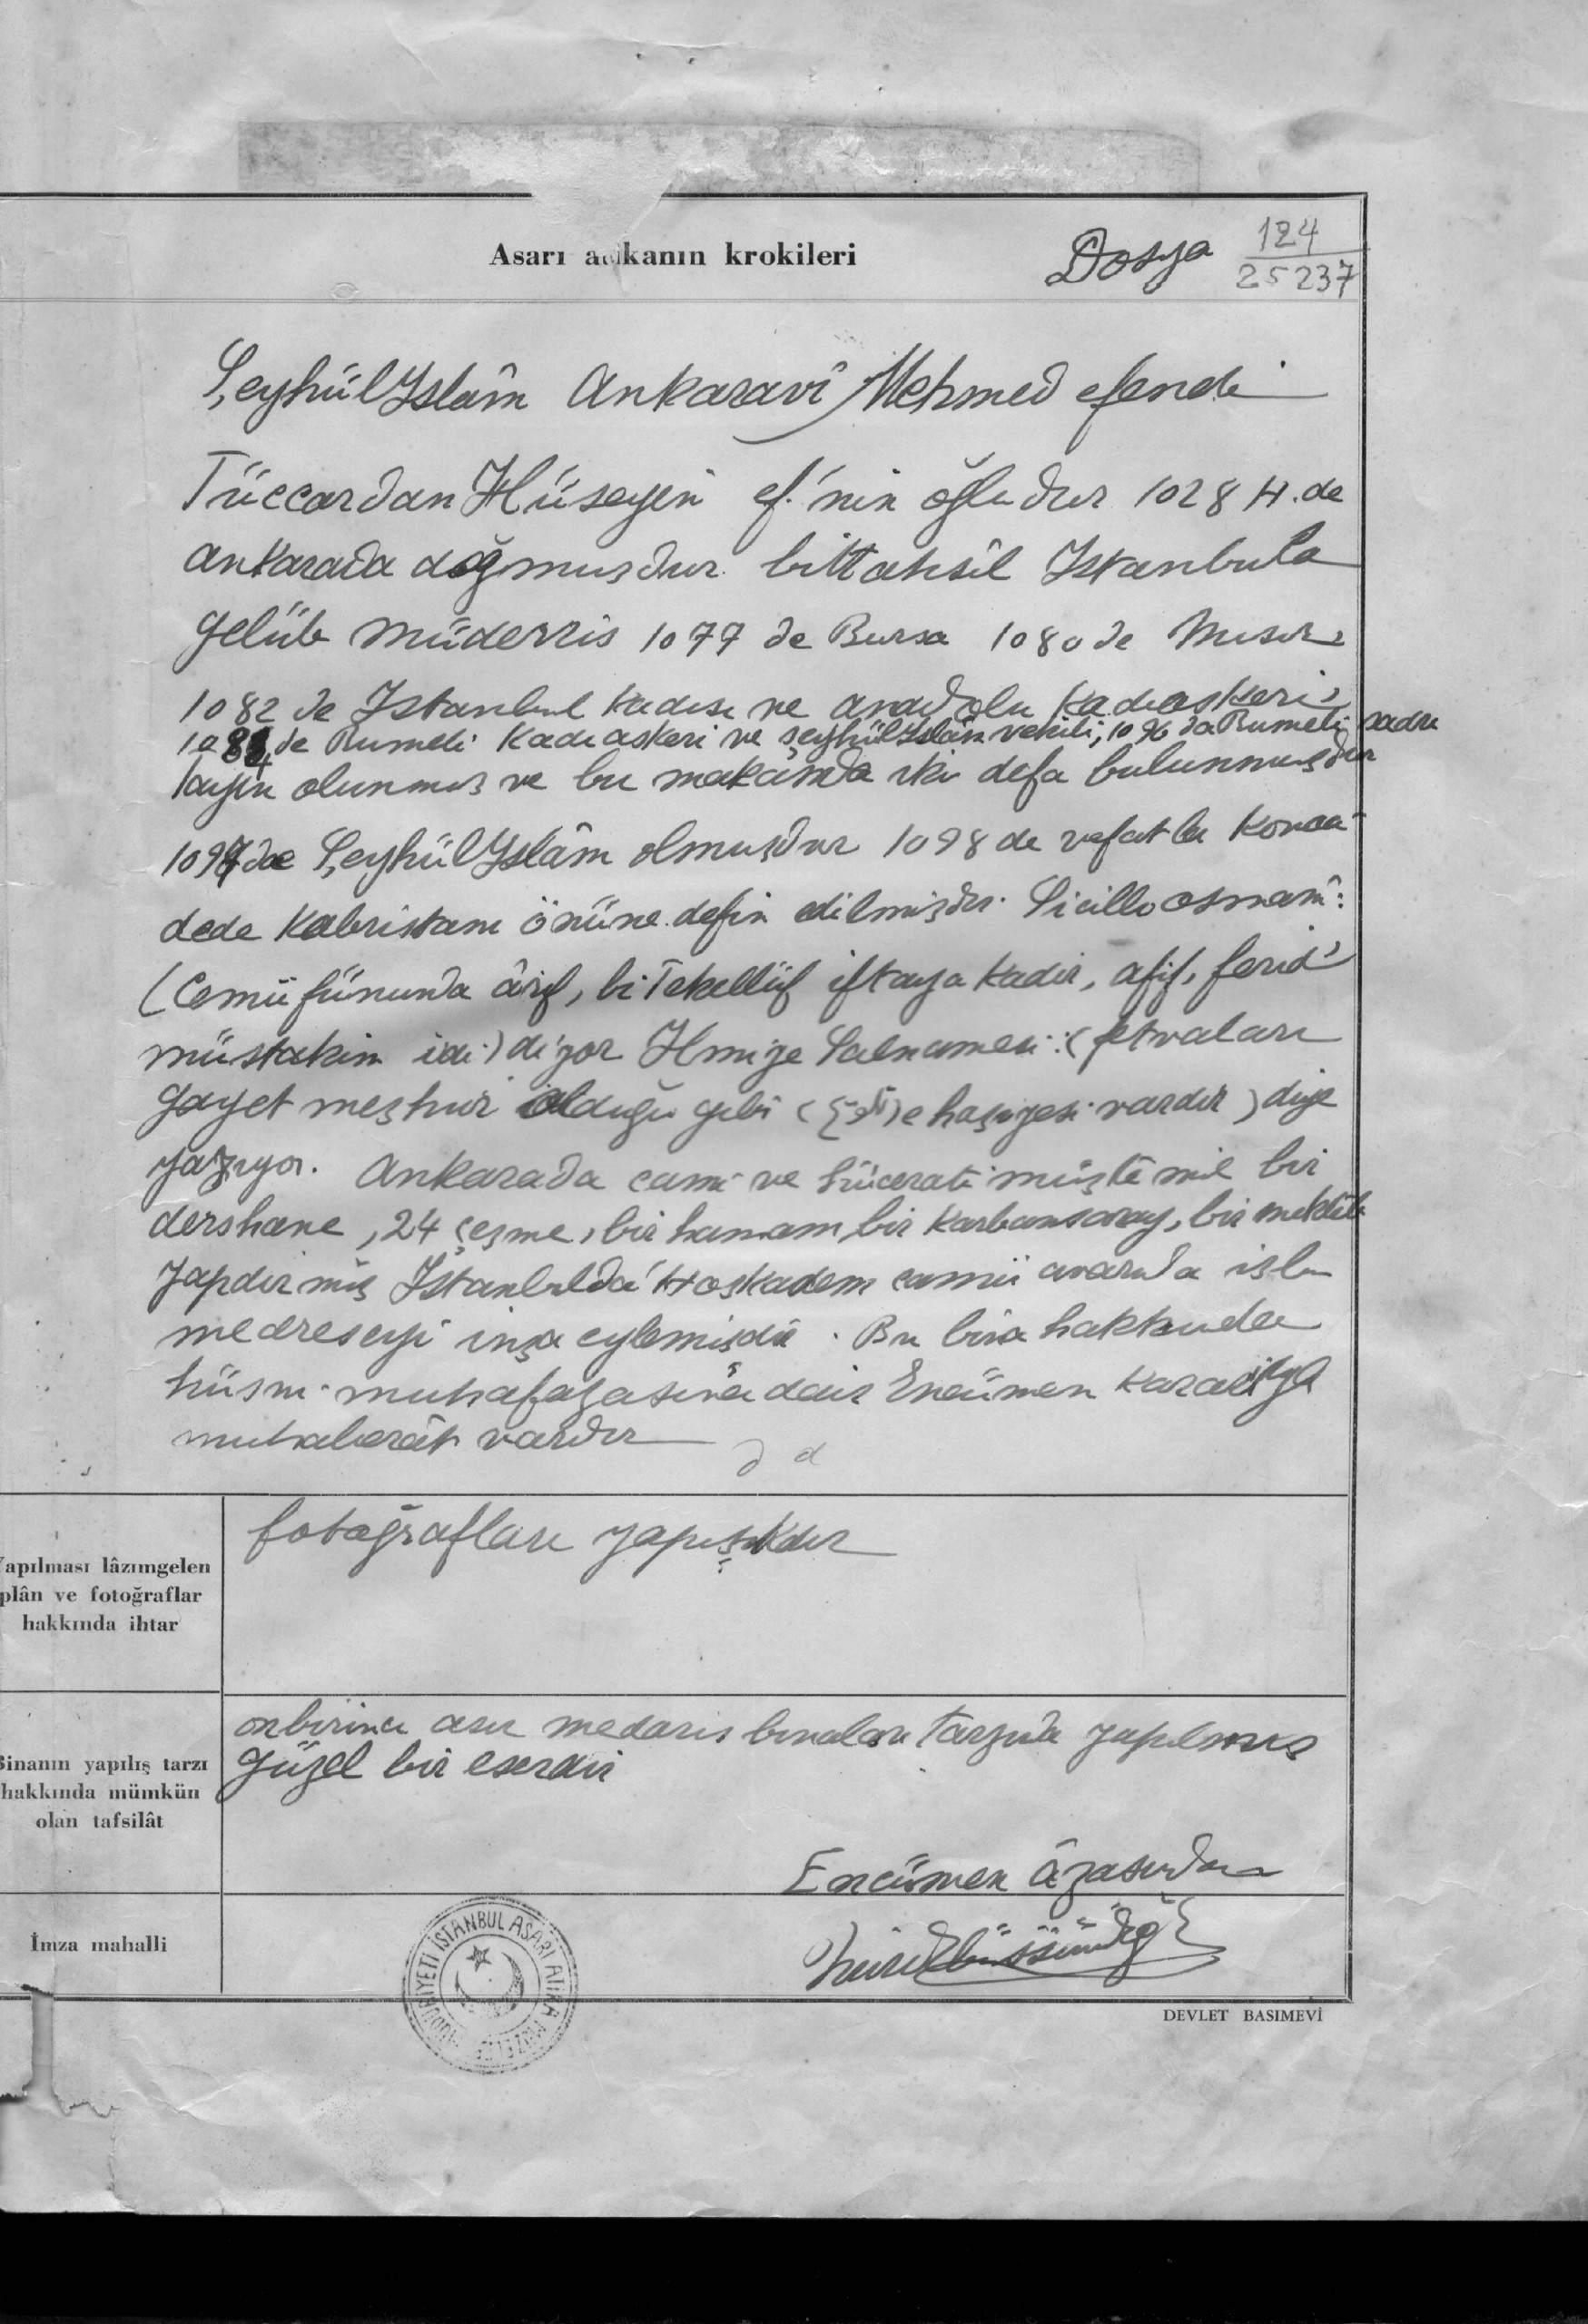 Asarı atikanın krokileri
Dosya 124
25237
ŞeyhülIslâm Ankaravî Mehmed efendi
Tüccardan Hüseyin ef.'nin oğludur 1028 H. de
Ankarada doğmuşdur bittahsil Istanbula
gelüb müderris 1077 de Bursa 1080 de Mısır
1082 de Istanbul kadısı ve anadolu Kadıaskeri,
1084 de Rumeli Kadıaskeri ve şeyhülIslâm vekili, 1096 da Rumeli sadrı
tayin olunmuş ve bu makamda iki defa bulunmuşdur
1097 de ŞeyhülIslâm olmuşdur 1098 de vefatla Kovacı
dede Kabristanı önüne defin edilmişdir. Sicillo osmanî:
(Cemii fünunda ârif, bi Tekellüf iftaya Kadir, afif, ferid
müstakim idi) diyor Ilmiye Salnamesi: (fetvaları
gayet meşhur olduğu gibi ( ) e haşiyesi vardır) diye
yazıyor. Ankarada cami ve hücerati müştemil bir
dershane, 24 çeşme, bir hamam, bir Karbansaray, bir mekteb
yapdırmış Istanbulda Hoşkadem camii civarında işbu
medreseyi inşa eylemişdir. Bu bina hakkında
hüsni muhafazasına dair Encümen kararile
muhaberât vardır
Yapılması lâzımgelen
plân ve fotoğraflar
hakkında ihtar
fotoğrafları yapışıkdır
Binanın yapılış tarzı
hakkında mümkün
olan tafsilât
onbirinci asır medaris binaları tarzında yapılmış
güzel bir eserdir
Encümen âzasından
İmza mahalli
İSTANBUL ASARI ATİKA MÜZELERİ MÜDÜRİYETİ
DEVLET BASIMEVİ